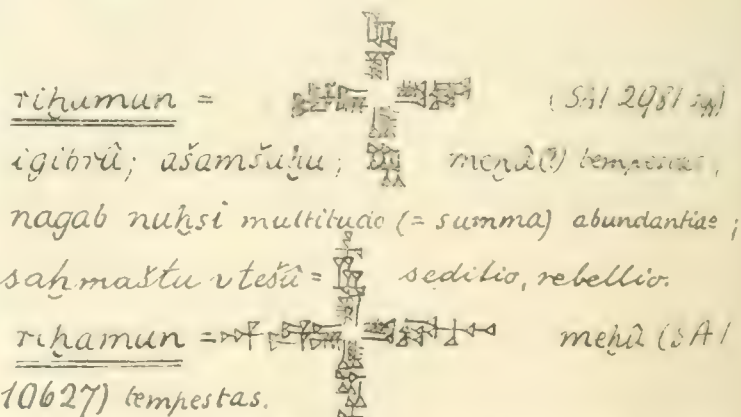 riḫamun = (SAI 2981
igibrû; ašamšuḫu; meḫû(?) tempestas;
nagab nuḫsi multitudo (= summa) abundantiae;
saḫmaštu = seditio, rebellio.
riḫamun = meḫû (SAI
10627) tempestas.